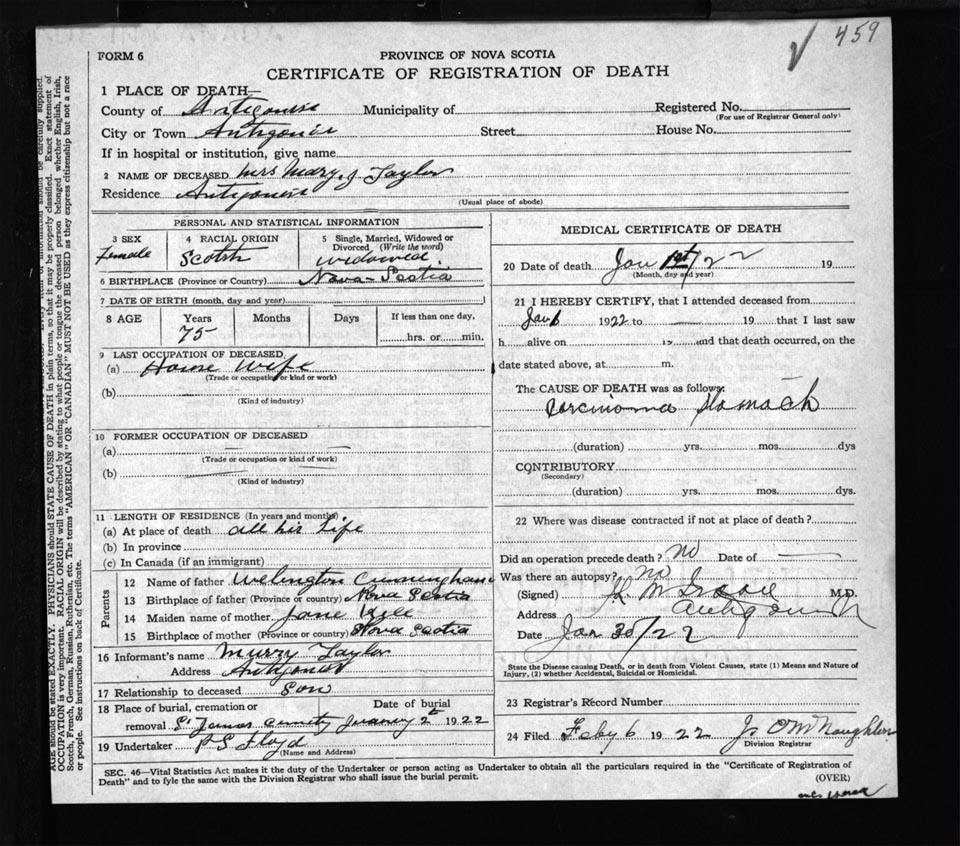 459
FORM 6
PROVINCE OF NOVA SCOTIA
CERTIFICATE OF REGISTRATION OF DEATH
1 PLACE OF DEATH—
County of Antigonish Municipality of Registered No.
(For use of Registrar General only)
City or Town Antigonish Street House No.
If in hospital or institution, give name
2 NAME OF DECEASED Mrs Mary J Taylor
Residence Antigonish
(Usual place of abode)
PERSONAL AND STATISTICAL INFORMATION
3 SEX Female
4 RACIAL ORIGIN Scotsh
5 Single, Married, Widowed or Divorced (Write the word) widowed
6 BIRTHPLACE (Province or Country) Nova-Scotia
7 DATE OF BIRTH (month, day and year)
8 AGE Years Months Days If less than one day,
75 hrs. or min.
9 LAST OCCUPATION OF DECEASED
(a) House Wife
(Trade or occupation or kind of work)
(b)
(Kind of industry)
10 FORMER OCCUPATION OF DECEASED
(a)
(Trade or occupation or kind of work)
(b)
(Kind of industry)
11 LENGTH OF RESIDENCE (In years and months)
(a) At place of death all his Life
(b) In province
(c) In Canada (if an immigrant)
Parents
12 Name of father Welington Cunningham
13 Birthplace of father (Province or country) Nova Scotia
14 Maiden name of mother Jane Kyle
15 Birthplace of mother (Province or country) Nova Scotia
16 Informant's name Murry Taylor
Address Antigonish
17 Relationship to deceased Son
18 Place of burial, cremation or Date of burial
removal St James 2 1922
19 Undertaker P S Floyd
(Name and Address)
MEDICAL CERTIFICATE OF DEATH
20 Date of death Jan 1st/22 19
(Month, day and year)
21 I HEREBY CERTIFY, that I attended deceased from
Jan 1922 to — 19 that I last saw
h alive on 19 and that death occurred, on the
date stated above, at m.
The CAUSE OF DEATH was as follows:
Carcinoma Stomach
(duration) yrs. mos. dys
CONTRIBUTORY
(Secondary)
(duration) yrs. mos. dys.
22 Where was disease contracted if not at place of death?
Did an operation precede death? no Date of —
Was there an autopsy? no
(Signed) M.D.
Address Antigonish
Date Jan 30/22
State the Disease causing Death, or in death from Violent Causes, state (1) Means and Nature of
Injury, (2) whether Accidental, Suicidal or Homicidal.
23 Registrar's Record Number
24 Filed Feby 6 1922
Division Registrar
SEC. 46—Vital Statistics Act makes it the duty of the Undertaker or person acting as Undertaker to obtain all the particulars required in the "Certificate of Registration of
Death" and to fyle the same with the Division Registrar who shall issue the burial permit. (OVER)
AGE should be stated EXACTLY. PHYSICIANS should STATE CAUSE OF DEATH in plain terms, so that it may be properly classified. Exact statement of
OCCUPATION is very important. RACIAL ORIGIN will be described by stating to what people or tongue the deceased person belonged whether English, Irish,
Scotch, French, German, Russian, Ruthenian, etc. The terms "AMERICAN" OR "CANADIAN" MUST NOT BE USED as they express citizenship but not a race
or people. See instructions on back of Certificate.